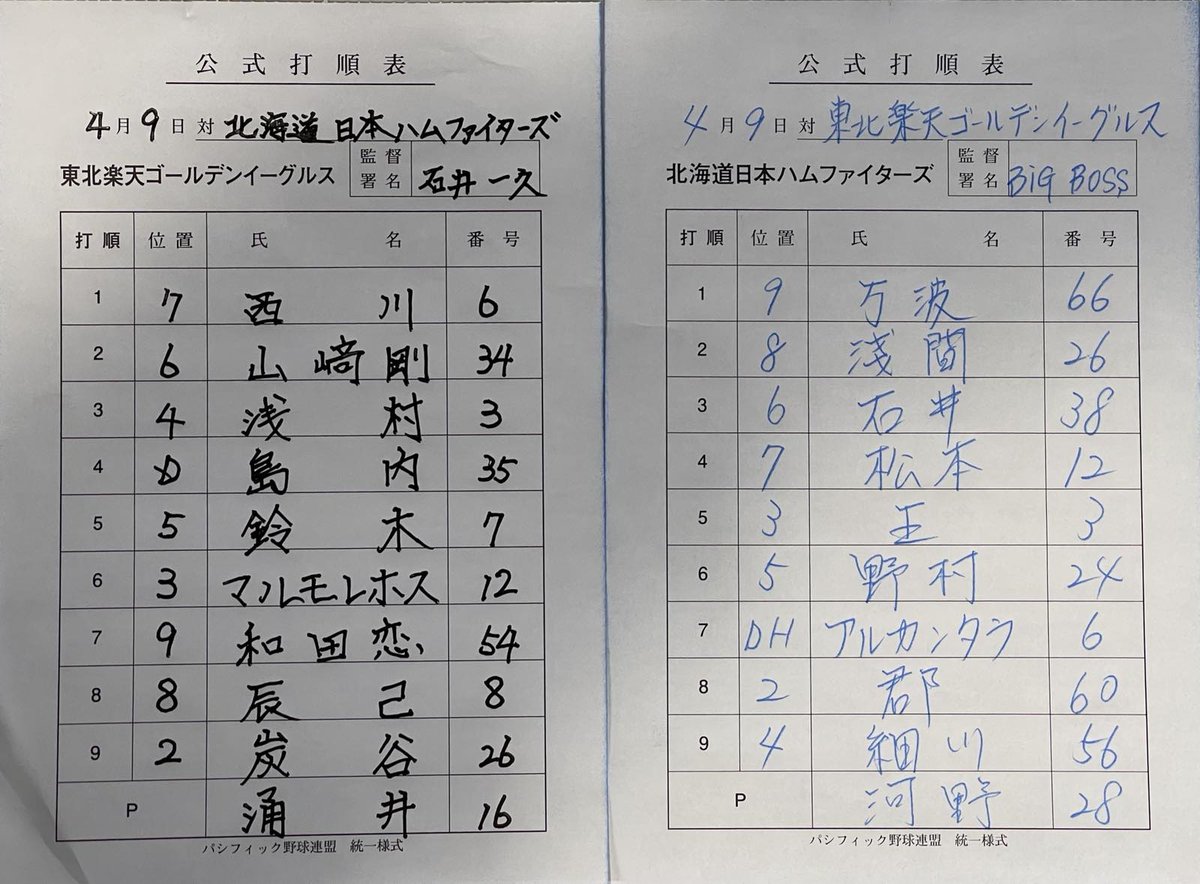 公式打順表
4月9日対 北海道日本ハムファイターズ
東北楽天ゴールデンイーグルス 監督署名 石井一久
打順 位置 氏名 番号
1 7 西川 6
2 6 山﨑剛 34
3 4 浅村 3
4 D 島内 35
5 5 鈴木 7
6 3 マルモレホス 12
7 9 和田恋 54
8 8 辰己 8
9 2 炭谷 26
P 涌井 16
パシフィック野球連盟 統一様式
公式打順表
4月9日対 東北楽天ゴールデンイーグルス
北海道日本ハムファイターズ 監督署名 BiG BOSS
打順 位置 氏名 番号
1 9 万波 66
2 8 浅間 26
3 6 石井 38
4 7 松本 12
5 3 王 3
6 5 野村 24
7 DH アルカンタラ 6
8 2 郡 60
9 4 細川 56
P 河野 28
パシフィック野球連盟 統一様式